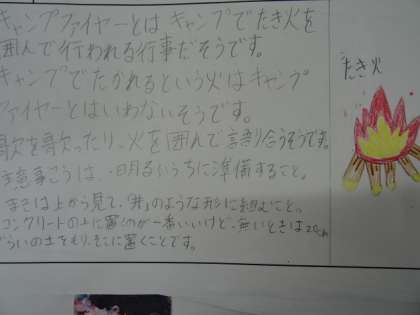 キャンプファイヤーとは キャンプでたき火を
囲んで行われる行事だそうです。
キャンプでたかれるという火はキャンプ
ファイヤーとはいわないそうです。
歌を歌ったり、火を囲んで語り合うそうです。
注意事こうは、・明るいうちに準備すること。
・まきは上から見て、「井」のような形に組むこと。
・コンクリートの上に置くのが一番いいけど、無いときは20cm
ぐらいの土をもり、そこに置くことです。
たき火